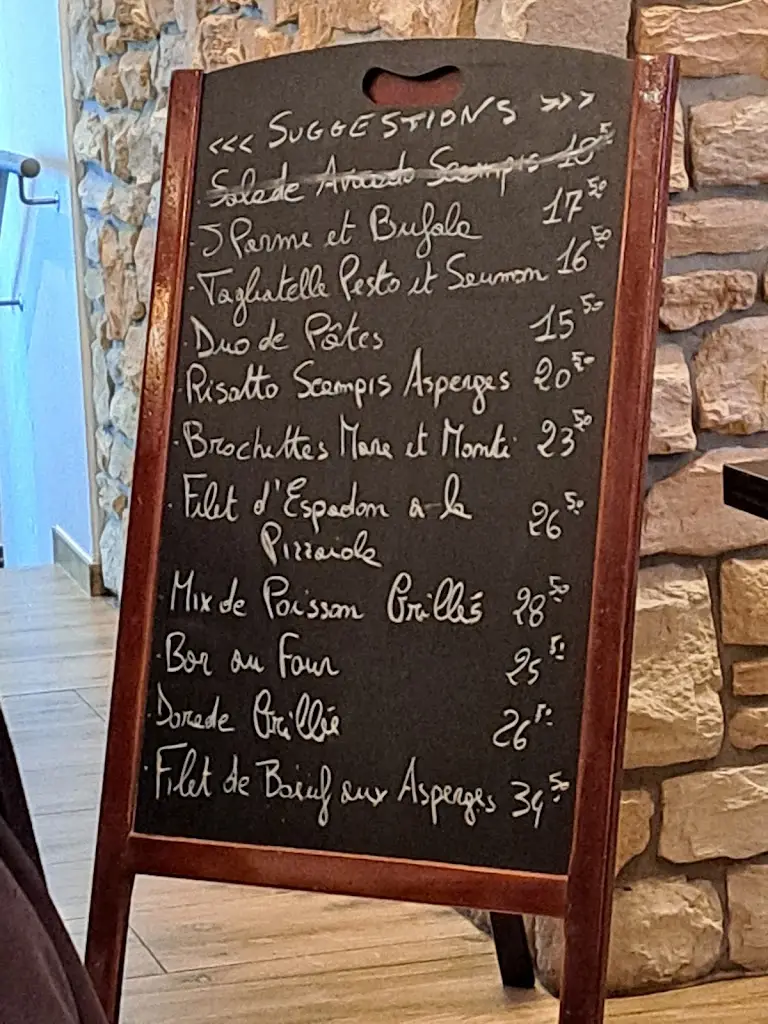 <<< SUGGESTIONS >>>
Salade Avocado Scampis 18⁵
- J Parme et Bufala 17⁵⁰
- Tagliatelle Pesto et Saumon 16⁵⁰
- Duo de Pâtes 15⁵⁰
- Risotto Scampis Asperges 20⁵⁰
- Brochettes Mare et Monti 23⁵⁰
- Filet d'Espadon a la 26⁵⁰
Pizzaiola
- Mix de Poisson Grillés 28⁵⁰
- Bar au Four 25⁵⁰
- Dorade Grillée 26⁵⁰
- Filet de Bœuf aux Asperges 34⁵⁰